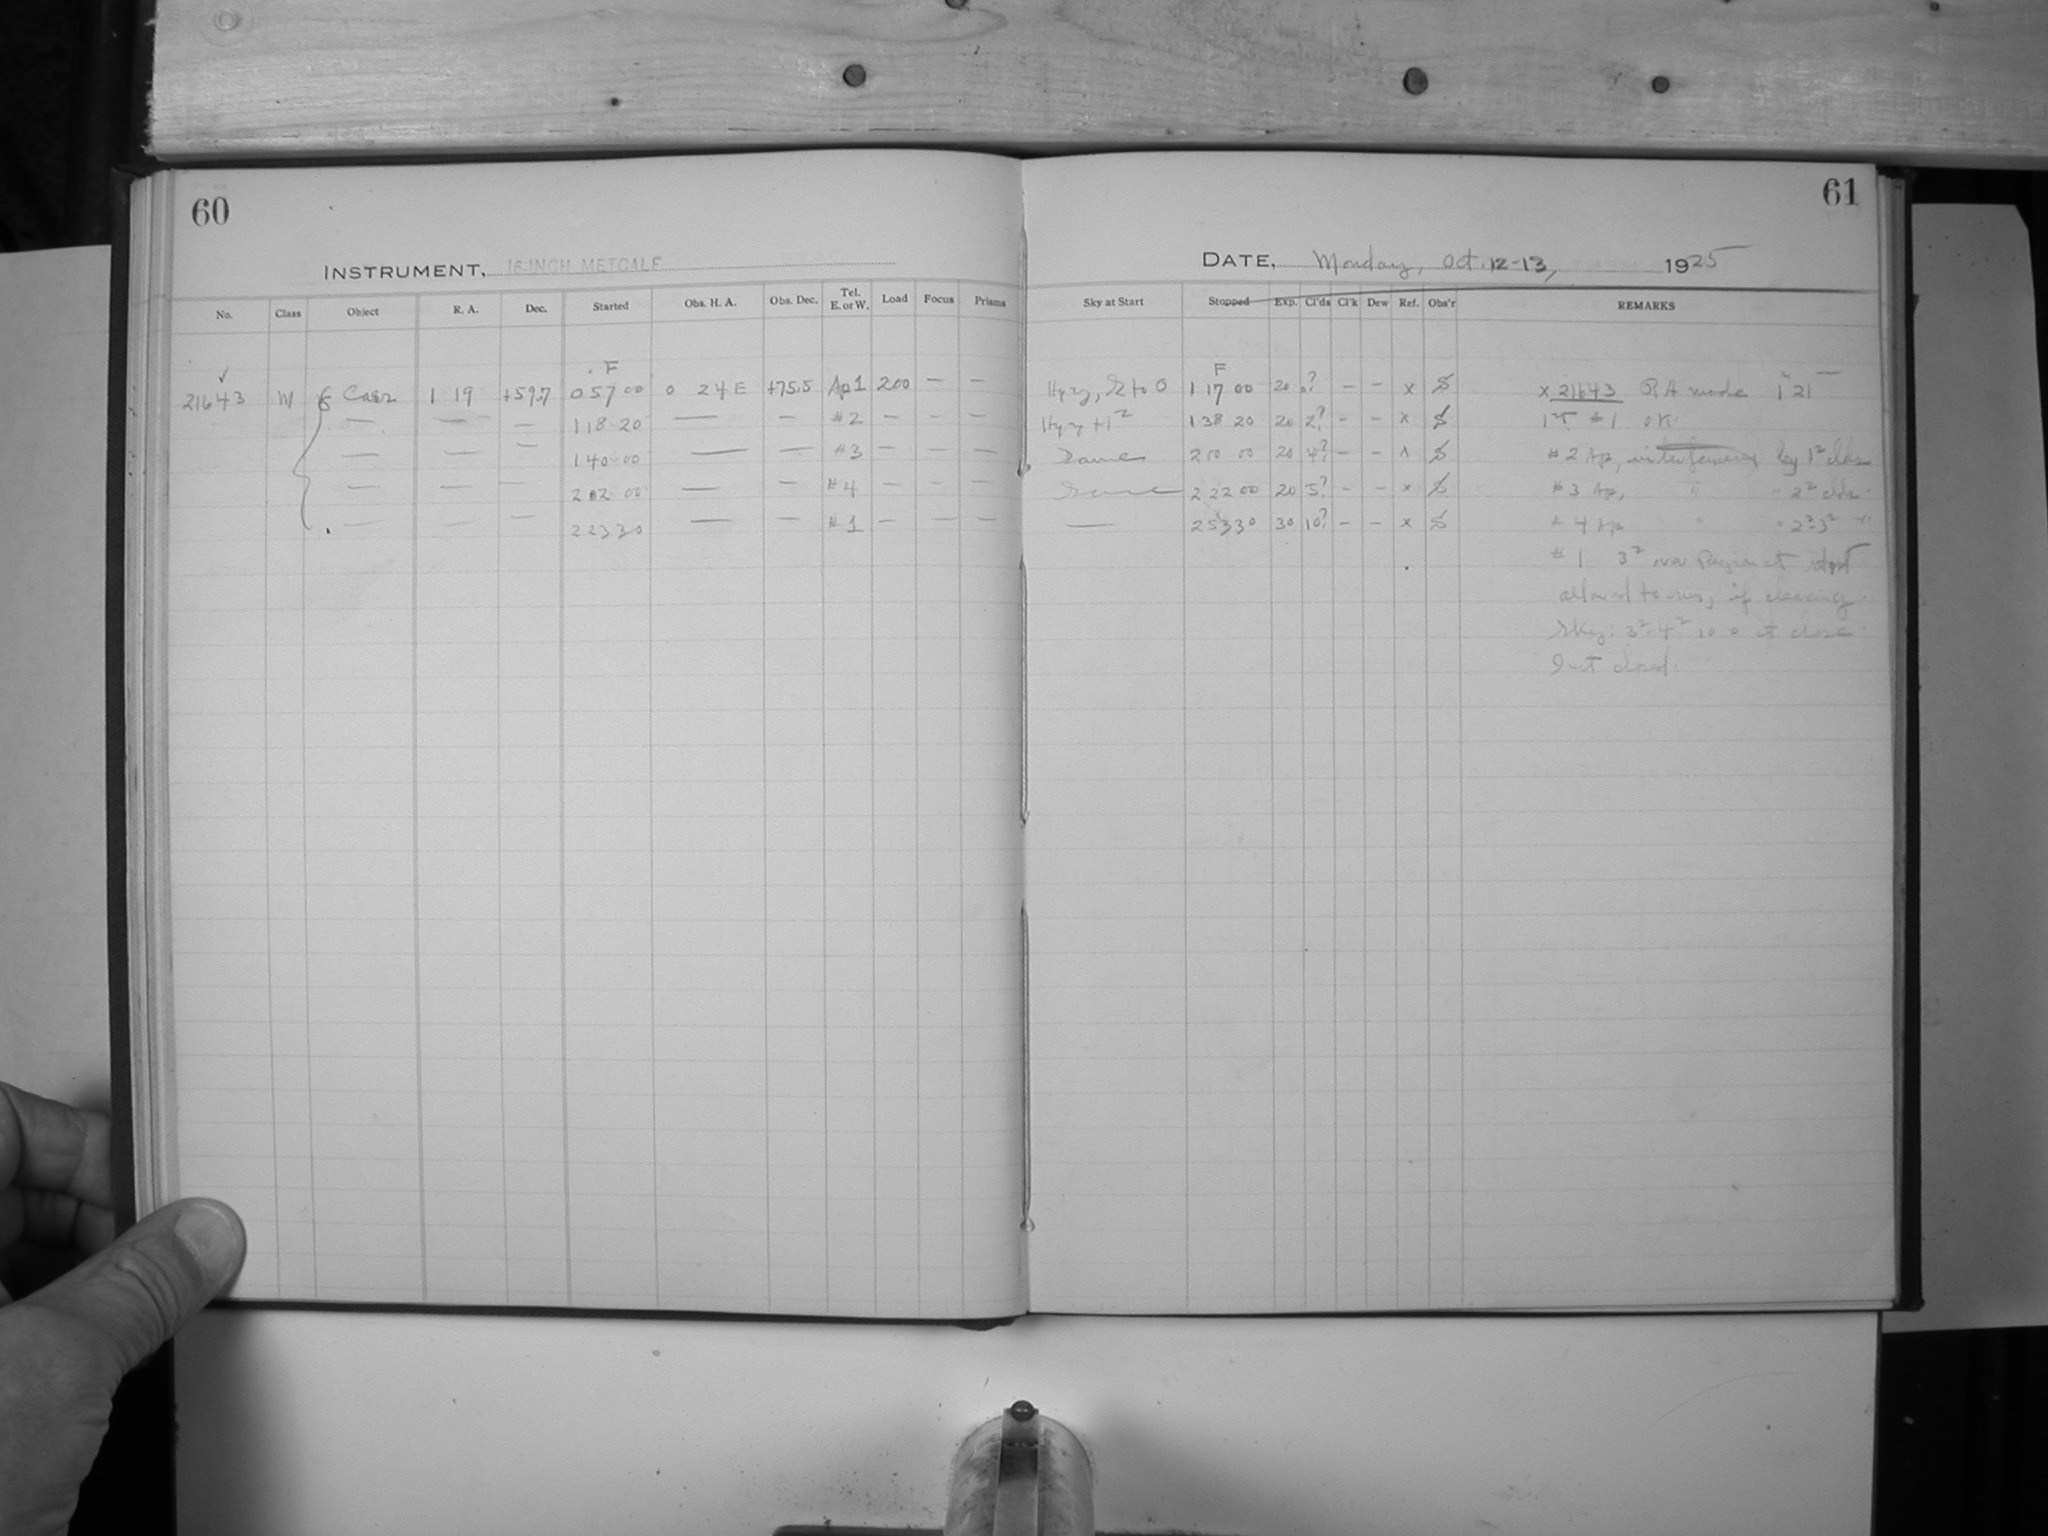 60
INSTRUMENT, 16-INCH METCALF
No. Class Object R. A. Dec. Started Obs. H. A. Obs. Dec. Tel. E. or W. Load Focus Prisms
F
21643 M Cass 1 19 +59.7 0 57 00 0 24 E +75.5 Ap 1 200 — —
— — — 1 18 20 — — #2 — — —
— — — 1 40 00 — — #3 — — —
— — — 2 02 00 — — #4 — — —
— — — 2 23 30 — — #1 — — —
61
DATE, Monday, Oct. 12-13, 1925
Sky at Start Stopped Exp. Cl'ds Cl'k Dew Ref. Obs'r REMARKS
F
Hyzy, to 0 1 17 00 20 0? — — x S x 21643 R A made 1 21
Hyzy +1² 1 38 20 20 2? - - x S 1st #1 OK.
Same 2 00 00 20 4? — — x S #2 Ap, interference by 1² clds
Same 2 22 00 20 5? - - x S #3 Ap, " " 2² clds.
— 2 53 30 30 10? — — x S #4 Ap " " 2²-3² "
#1 3² over Region at start
allowed to run, if clearing.
Sky: 3²-4² 10 0 at close
Inst closed.